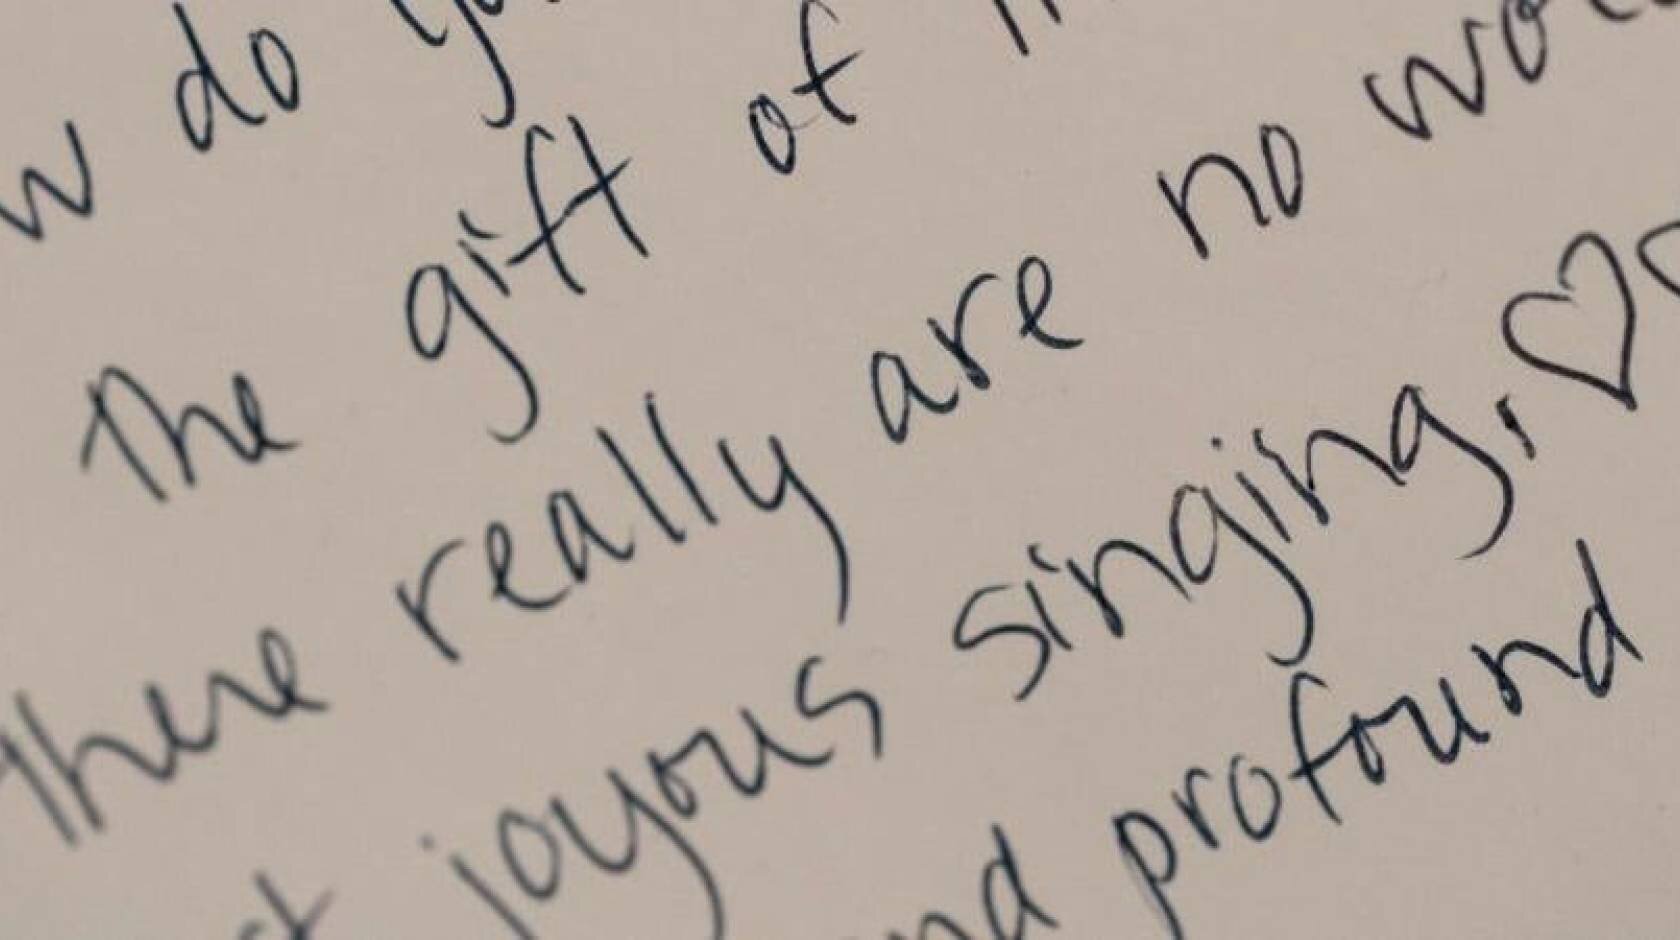 w do
The gift of
There really are no
joyous singing, ♡
profound